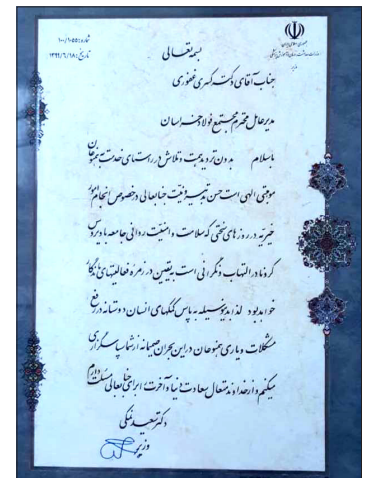 بسمه تعالی
جمهوری اسلامی ایران
وزارت بهداشت، درمان و آموزش پزشکی
وزیر
شماره: ۱۰۰/۱۰۵۵
تاریخ: ۱۳۹۹/۶/۱۸
جناب آقای دکتر کسری غفوری
مدیر عامل محترم مجتمع فولاد خراسان
با سلام بدون تردید همت و تلاش در راستای خدمت به همنوعان
موهبتی الهی است حسن تدبیر و نیت جنابعالی در خصوص انجام امور
خیریه در روزهای سختی که سلامت و امنیت روانی جامعه با ویروس
کرونا در التهاب و نگرانی است به یقین در زمره فعالیتهای ماندگار
خواهد بود لذا بدینوسیله به پاس کمکهای انسان دوستانه در رفع
مشکلات و یاری همنوعان در این بحران صمیمانه از شما سپاسگزاری
میکنم و از خداوند متعال سعادت دنیا و آخرت را برای جنابعالی مسئلت دارم
دکتر سعید نمکی
وزیر